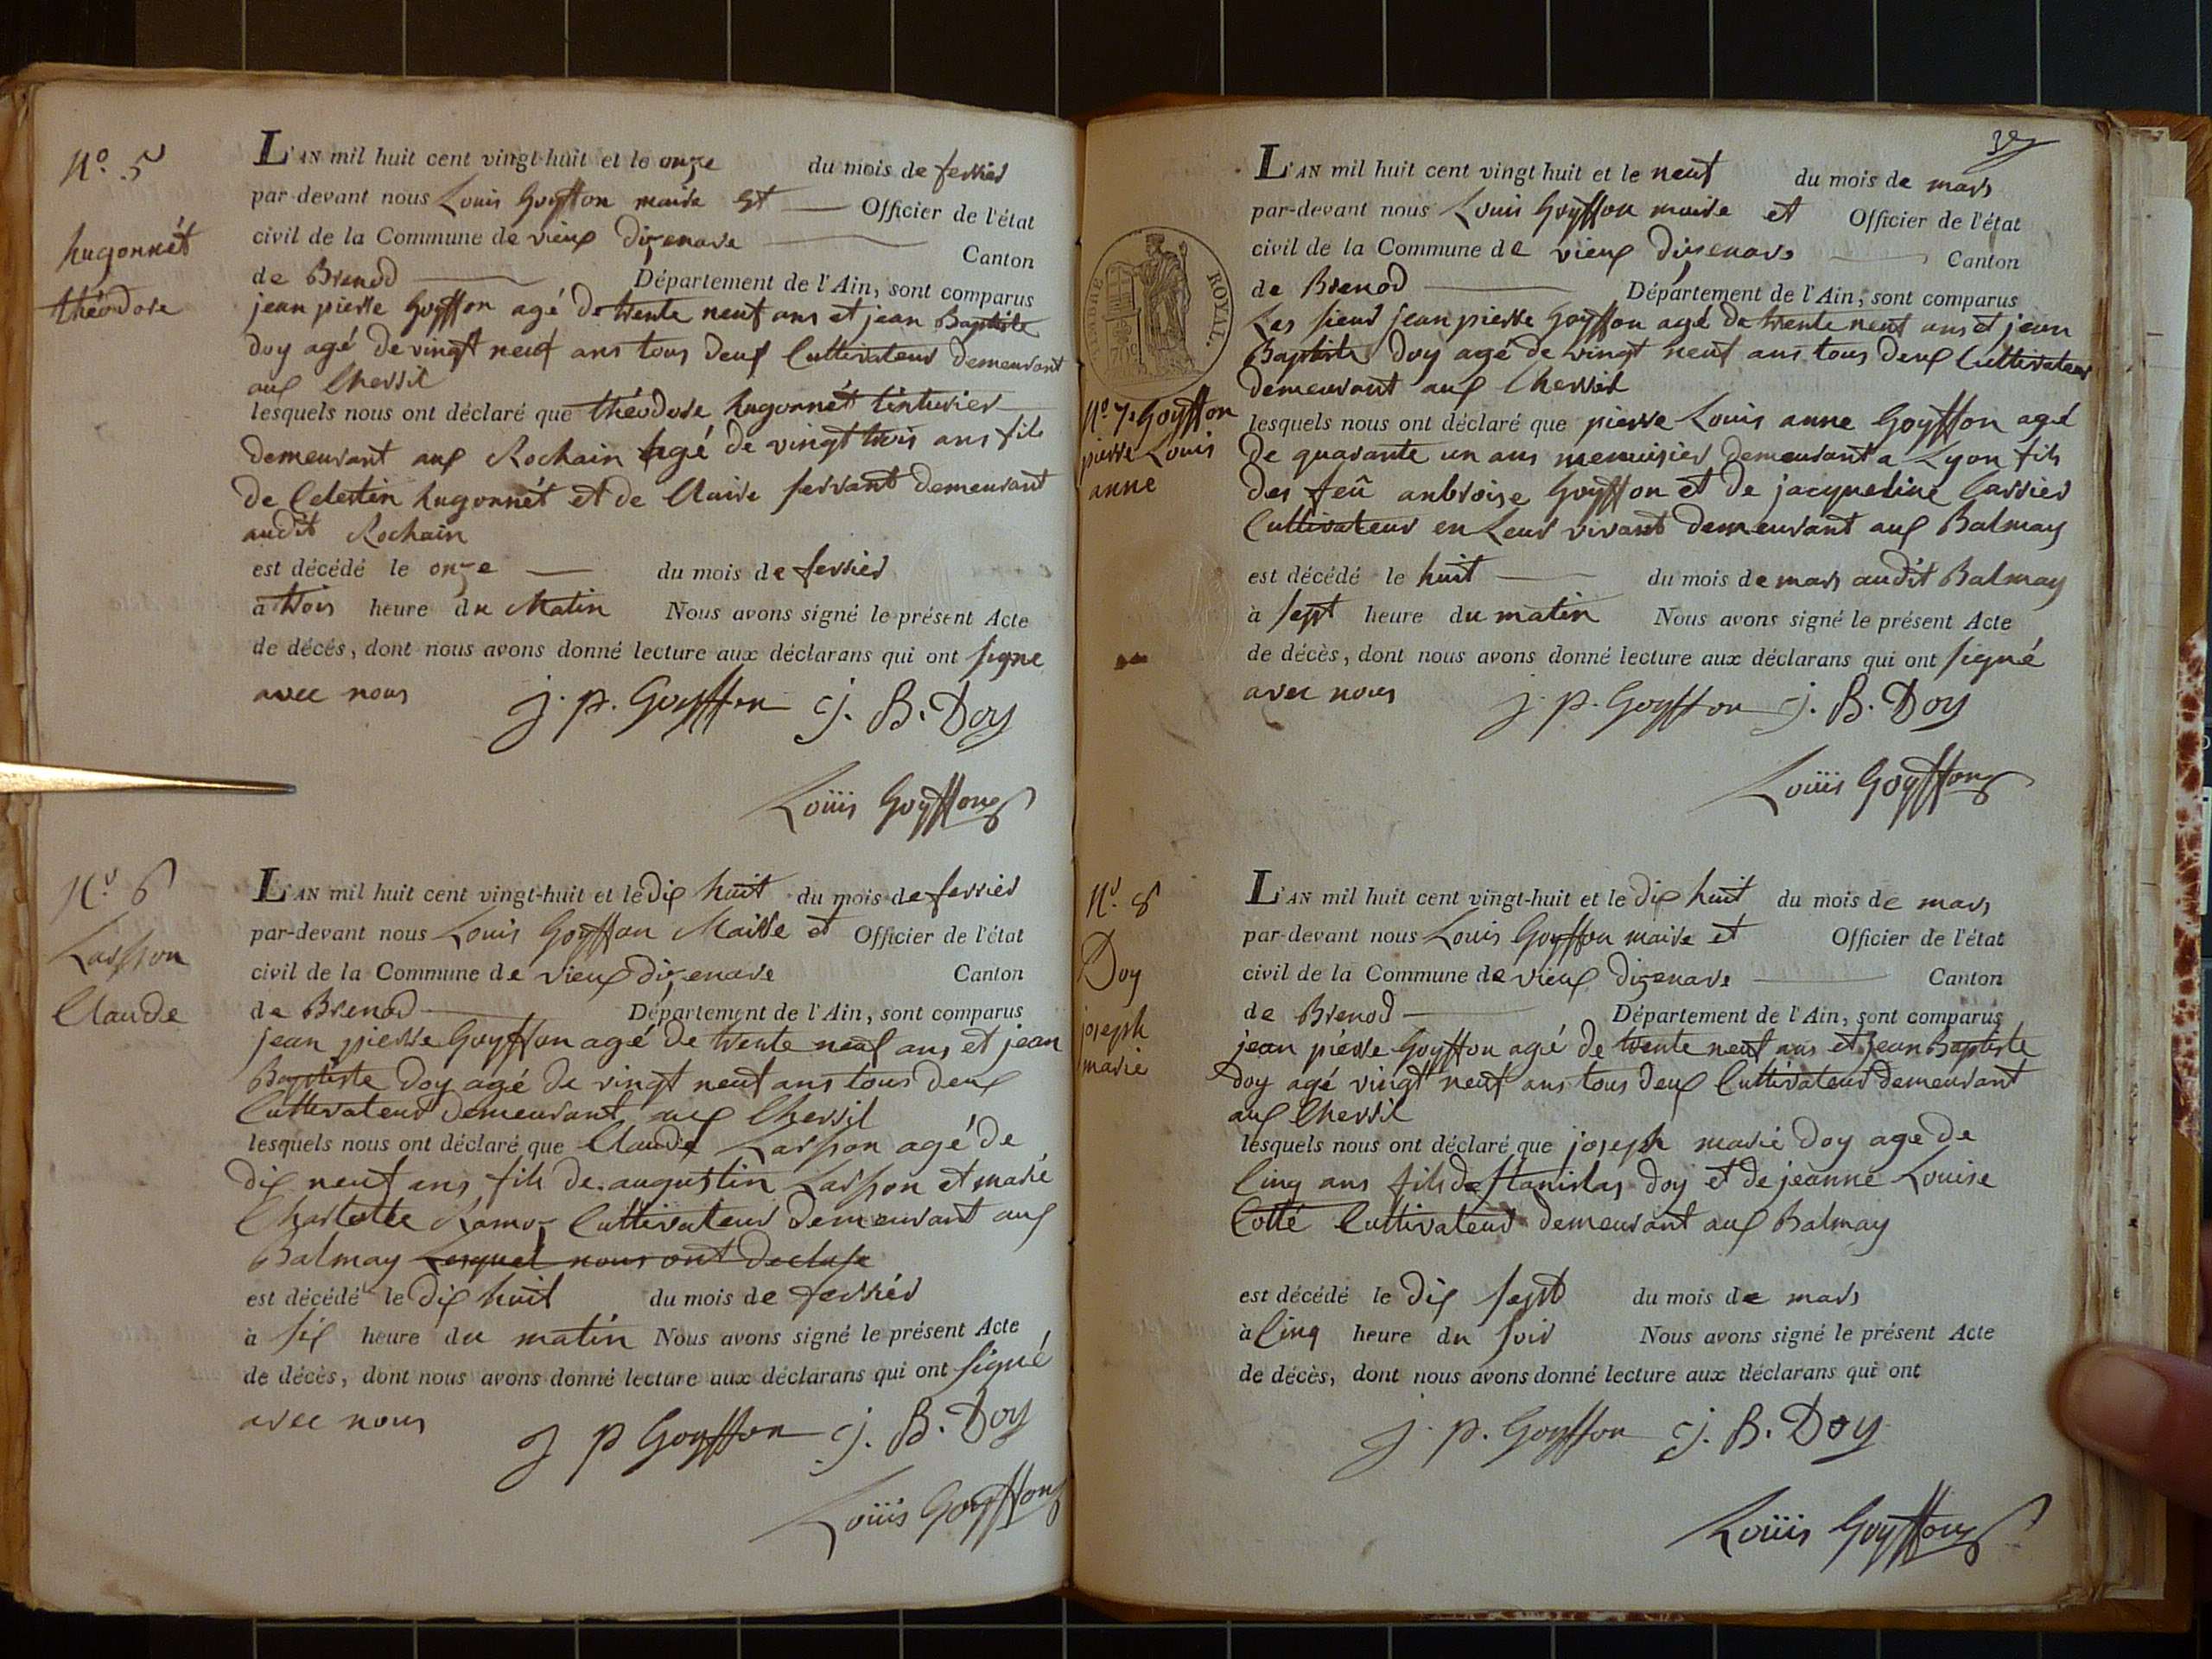 N.o 5
hugonnét
théodore
L'AN mil huit cent vingt-huit et le onze du mois de fevrier
par-devant nous Louis Goyffon maire et Officier de l'état
civil de la Commune de vieux dizenave Canton
de Brenod Département de l'Ain, sont comparus
jean pierre Goyffon agé de trente neuf ans et jean Baptiste
doy agé de vingt neuf ans tous deux Cultivateur demeurant
aux Chevril
lesquels nous ont déclaré que théodore hugonnét tinturier
demeurant aux Rochain agé de vingt trois ans fils
de Celestin hugonnét et de Claire servant demeurant
audit Rochain
est décédé le onze du mois de fevrier
a trois heure du Matin Nous avons signé le présent Acte
de décés, dont nous avons donné lecture aux déclarans qui ont signe
avec nous
j. p. Goyffon j. B. Doy
Loüis Goyffon
N.o 6
Lasson
Claude
L'AN mil huit cent vingt-huit et le dix huit du mois de fevrier
par-devant nous Louis Goyffon Maire et Officier de l'état
civil de la Commune de vieux dizenave Canton
de Brenod Département de l'Ain, sont comparus
jean pierre Goyffon agé de trente neuf ans et jean
Baptiste doy agé de vingt neuf ans tous deux
Cultivateur demeurant aux Chevril
lesquels nous ont déclaré que Claude Lasson agé de
dix neuf ans fils de augustin Lasson et marie
Charlotte Ramoz Cultivateur demeurant aux
Balmay Lesquel nous ont
est décédé le dix huit du mois de fevrier
à six heure du matin Nous avons signé le présent Acte
de décès, dont nous avons donné lecture aux déclarans qui ont signé
avec nous
j p Goyffon j. B. Doy
Loüis Goyffon
L'AN mil huit cent vingt huit et le neuf du mois de mars
par-devant nous Louis Goyffon maire et Officier de l'état
civil de la Commune de vieux dizenave Canton
de Brenod Département de l'Ain, sont comparus
ROYAL.
Les sieur jean pierre Goyffon agé de trente neuf ans et jean
Baptiste doy agé de vingt neuf ans tous deux Cultivateur
demeurant aux Chevril
N.o 7. Goyffon
pierre Louis
anne
lesquels nous ont déclaré que pierre Louis anne Goyffon agé
de quarante un ans menuisier demeurant a Lyon fils
des feû anbroise Goyffon et de jacqueline Carrier
Cultivateur en Leur vivant demeurant aux Balmay
est décédé le huit du mois de mars audit Balmay
à sept heure du matin Nous avons signé le présent Acte
de décès, dont nous avons donné lecture aux déclarans qui ont signé
avec nous
j. p. Goyffon j. B. Doy
Loüis Goyffon
N.o 8
Doy
joseph
marie
L'AN mil huit cent vingt-huit et le dix huit du mois de mars
par-devant nous Louis Goyffon maire et Officier de l'état
civil de la Commune de vieux dizenave Canton
de Brenod Département de l'Ain, sont comparus
jean pierre Goyffon agé de trente neuf ans et jean Baptiste
doy agé vingt neuf ans tous deux Cultivateur demeurant
aux Chevril
lesquels nous ont déclaré que joseph marie doy age de
Cinq ans fils de stanislas doy et de jeanne Louise
Cotté Cultivateur demeurant aux Balmay
est décédé le dix sept du mois de mars
à Cinq heure du soir Nous avons signé le présent Acte
de décès, dont nous avons donné lecture aux déclarans qui ont
j. p. Goyffon j. B. Doy
Loüis Goyffon